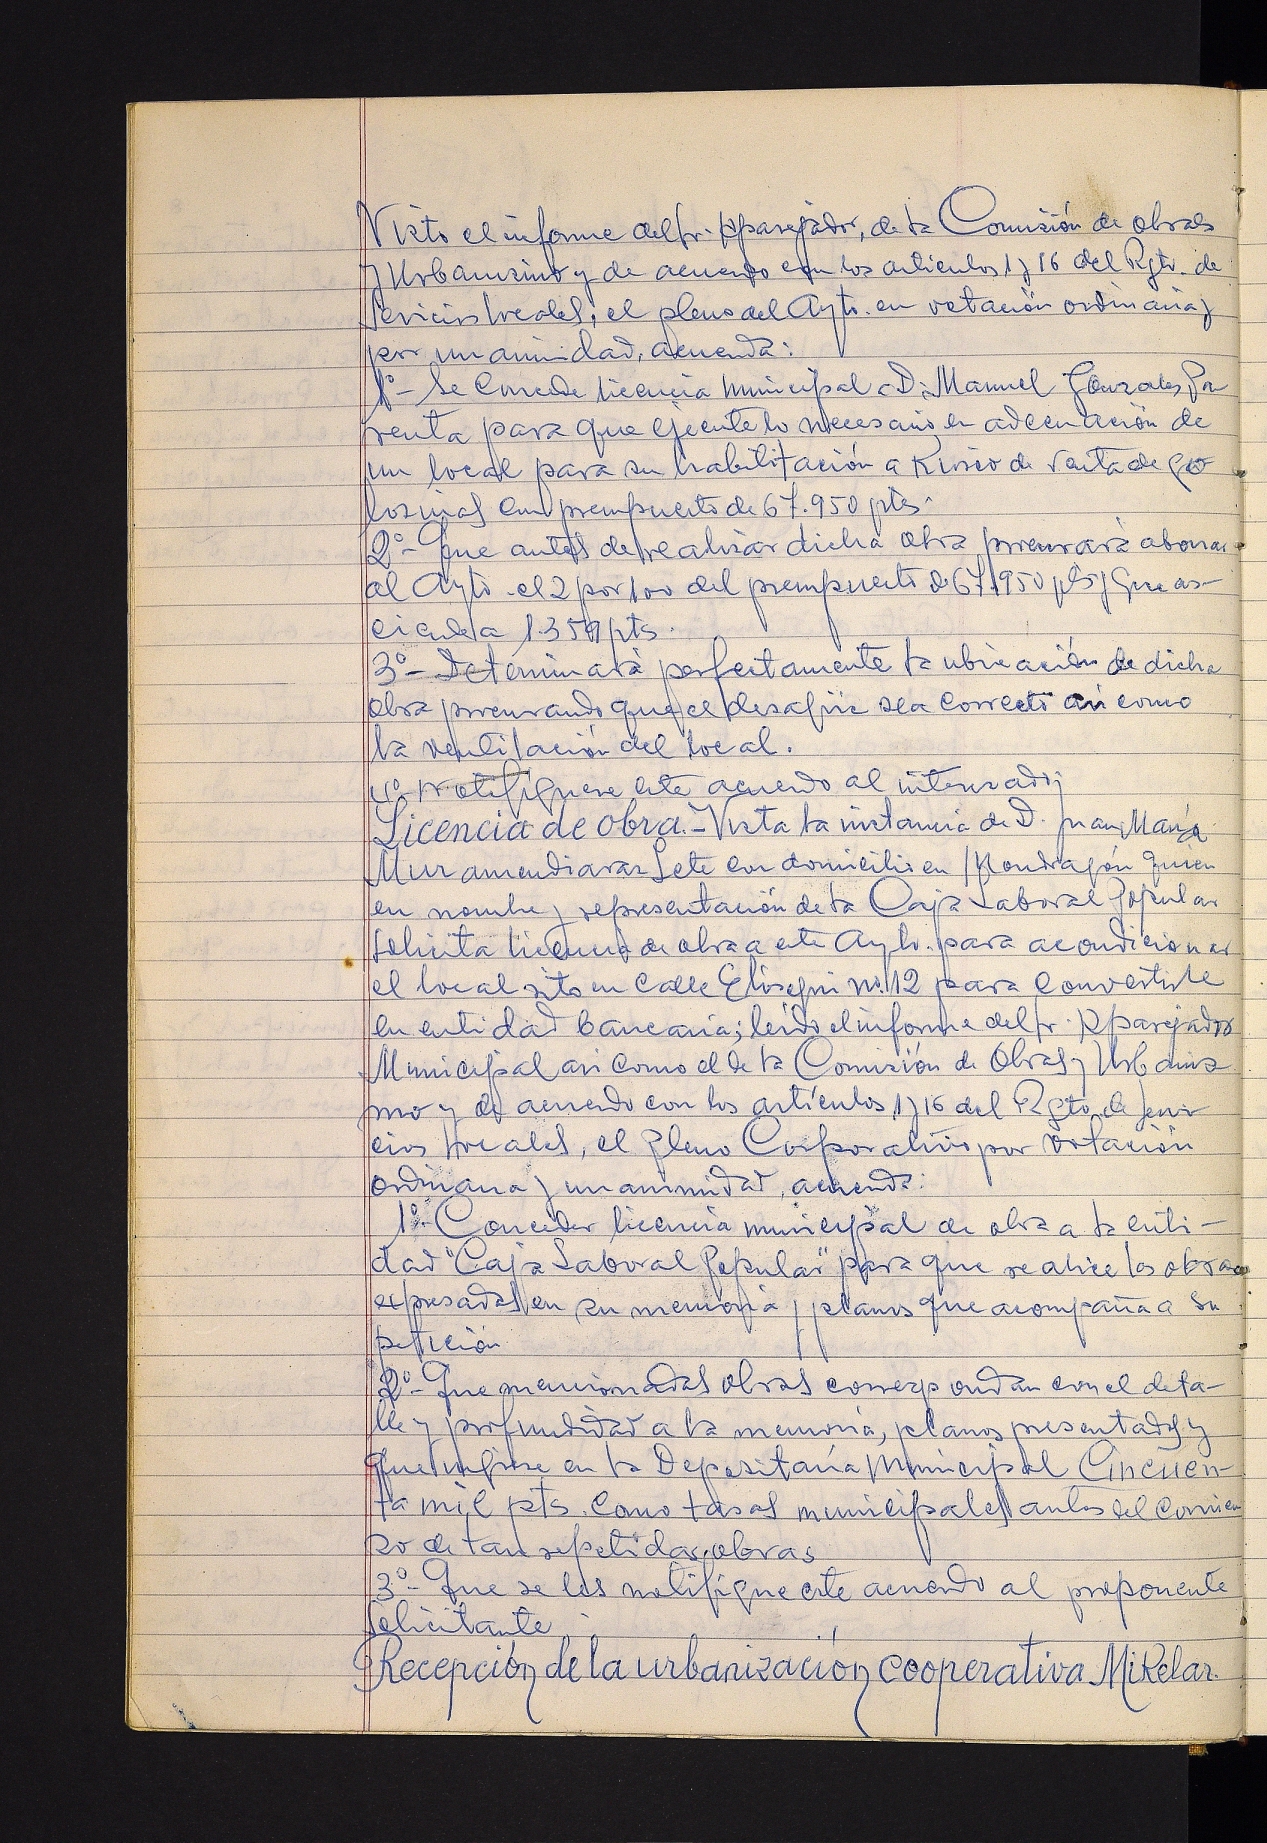 Visto el informe del Sr. Aparejador, de la Comisión de obras
y Urbanismo y de acuerdo con los artículos 1 y 16 del Rgto. de
Servicios locales, el pleno del Ayto. en votación ordinaria y
por unanimidad, acuerda:
1º- Se concede licencia municipal a D. Manuel Gonzales Pa
renta para que ejecute lo necesario en adecuación de
un local para su habilitación a Kiosco de venta de go
losinas con presupuesto de 67.950 pts.
2º- Que antes de realizar dicha obra procurará abonar
al Ayto. el 2 por 100 del presupuesto de 67.950 pts y que as-
ciende a 1.359 pts.
3º- Determinará perfectamente la ubicación de dicha
obra procurando que el desagüe sea correcto así como
la ventilación del local.
4º- Notifíquese este acuerdo al interesado;
Licencia de obra.- Vista la instancia de D. Juan María
Muramendiaraz Lete con domicilio en Mondragón quien
en nombre y representación de la Caja Laboral Popular
solicita licencia de obra a este Ayto. para acondicionar
el local sito en Calle Elosegui nº 12 para convertirle
en entidad bancaria; leído el informe del Sr. Aparejador
Municipal así como el de la Comisión de Obras y Urbanis
mo y de acuerdo con los artículos 1 y 16 del Rgto. de Servi
cios locales, el Pleno Corporativo por votación
ordinaria y unanimidad, acuerda:
1º- Conceder licencia municipal de obra a la enti-
dad "Caja Laboral Popular" para que realice las obras
expresadas en su memoria y planos que acompaña a su
petición
2º- Que mencionadas obras correspondan con el deta-
lle y profundidad a la memoria, planos presentados y
que ingrese en la Depositaría Municipal Cincuen-
ta mil pts. como tasas municipales antes del comien
zo de tan repetidas obras
3º- Que se les notifique este acuerdo al proponente
solicitante
Recepción de la urbanización cooperativa Mikelar.